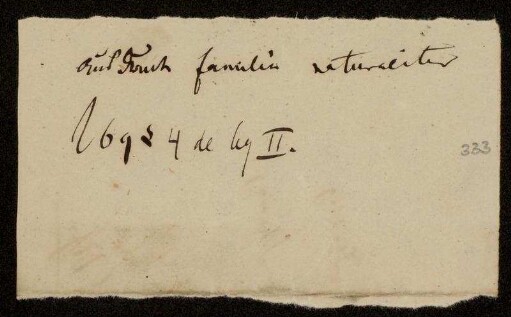 Ausdruck familia naturaliter
l 69 § 4 de leg II.
333